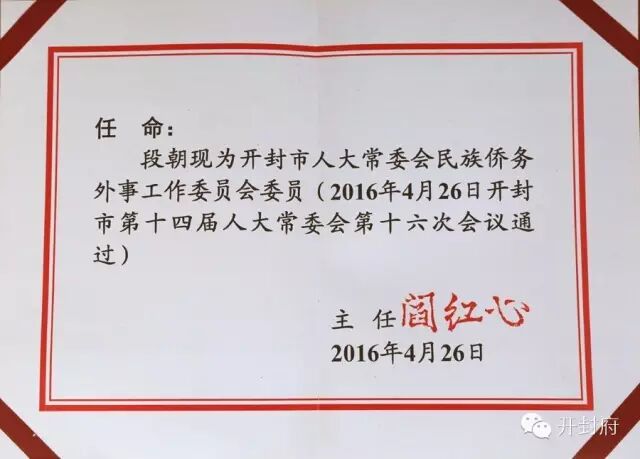 任 命：
段朝现为开封市人大常委会民族侨务
外事工作委员会委员（2016年4月26日开封
市第十四届人大常委会第十六次会议通
过）
主 任 阎红心
2016年4月26日
开封府